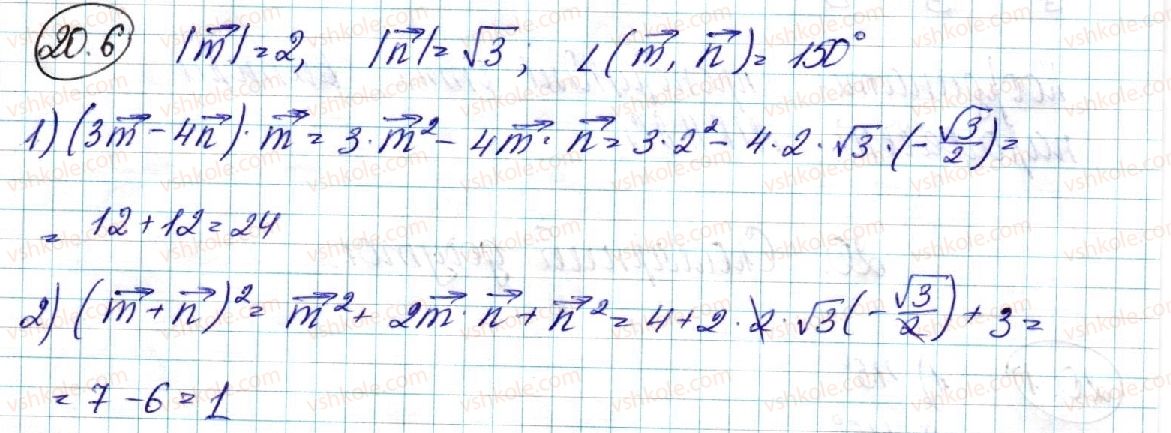 20.6 |m⃗|=2, |n⃗|=√3; ∠(m⃗, n⃗)=150°
1) (3m⃗-4n⃗)·m⃗=3·m⃗²-4m⃗·n⃗=3·2²-4·2·√3·(-√3/2)=
=12+12=24
2) (m⃗+n⃗)²=m⃗²+2m⃗·n⃗+n⃗²=4+2·2·√3(-√3/2)+3=
=7-6=1